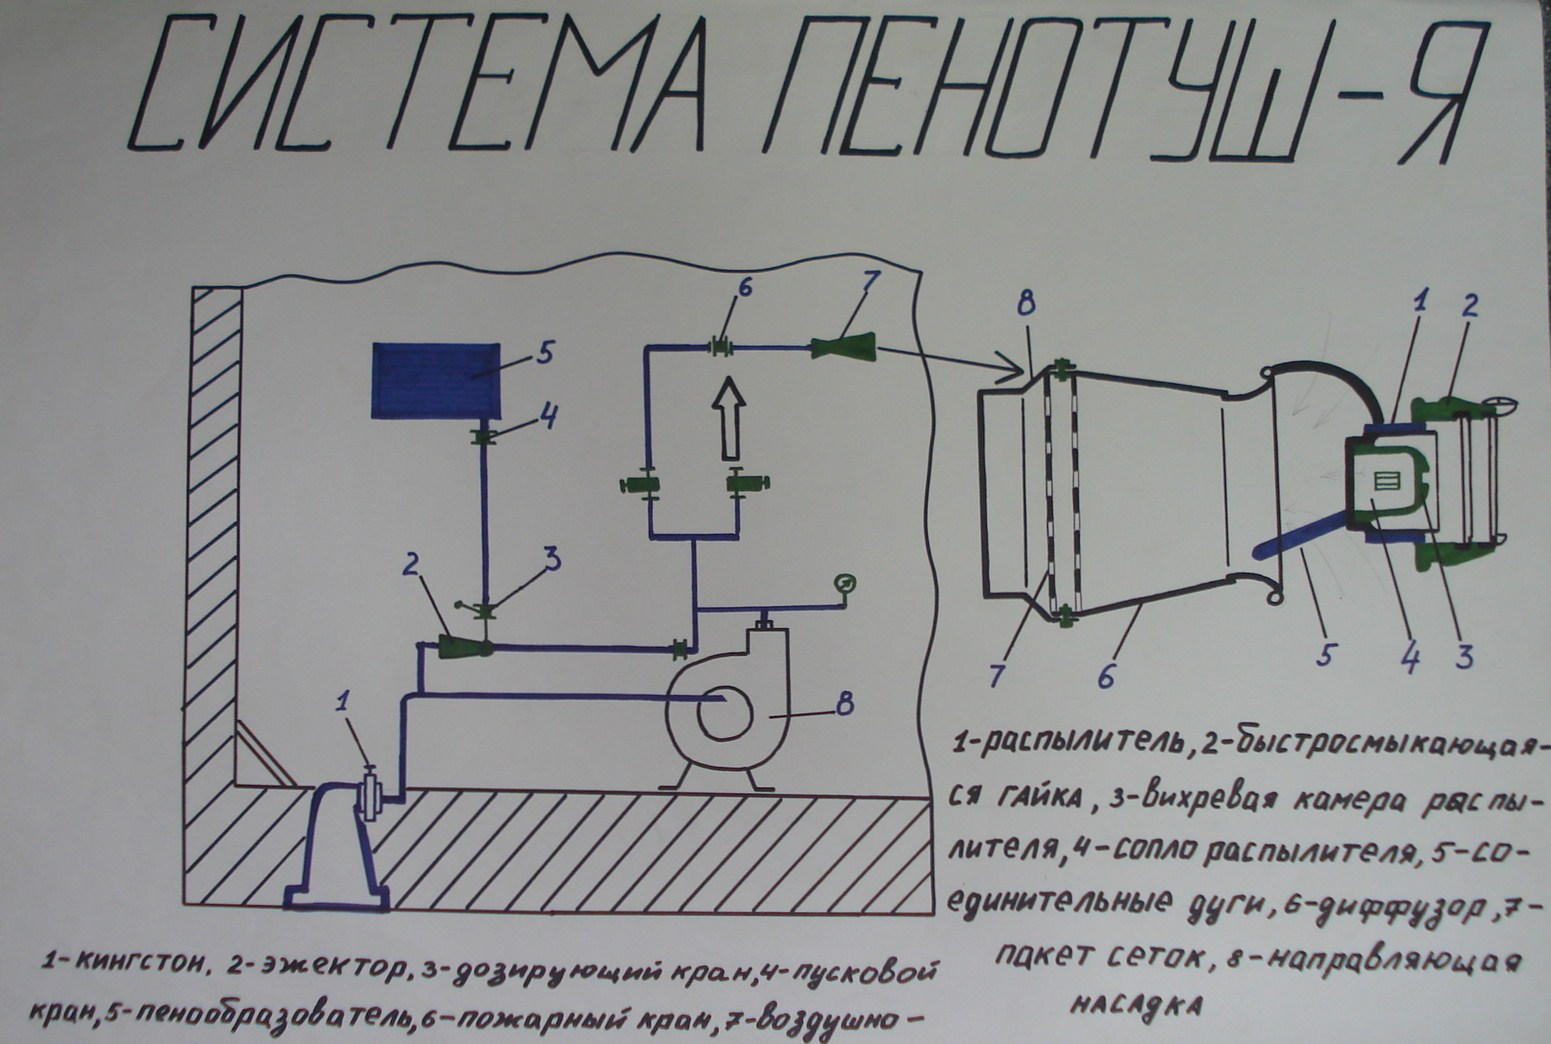 СИСТЕМА ПЕНОТУШ-Я
5
4
3
2
1
6
7
8
8
1
2
7
6
5
4
3
1-распылитель, 2-быстросмыкающая-
ся гайка, 3-вихревая камера распы-
лителя, 4-сопло распылителя, 5-со-
единительные дуги, 6-диффузор, 7-
пакет сеток, 8-направляющая
насадка
1-кингстон. 2-эжектор, 3-дозирующий кран, 4-пусковой
кран, 5-пенообразователь, 6-пожарный кран, 7-воздушно-